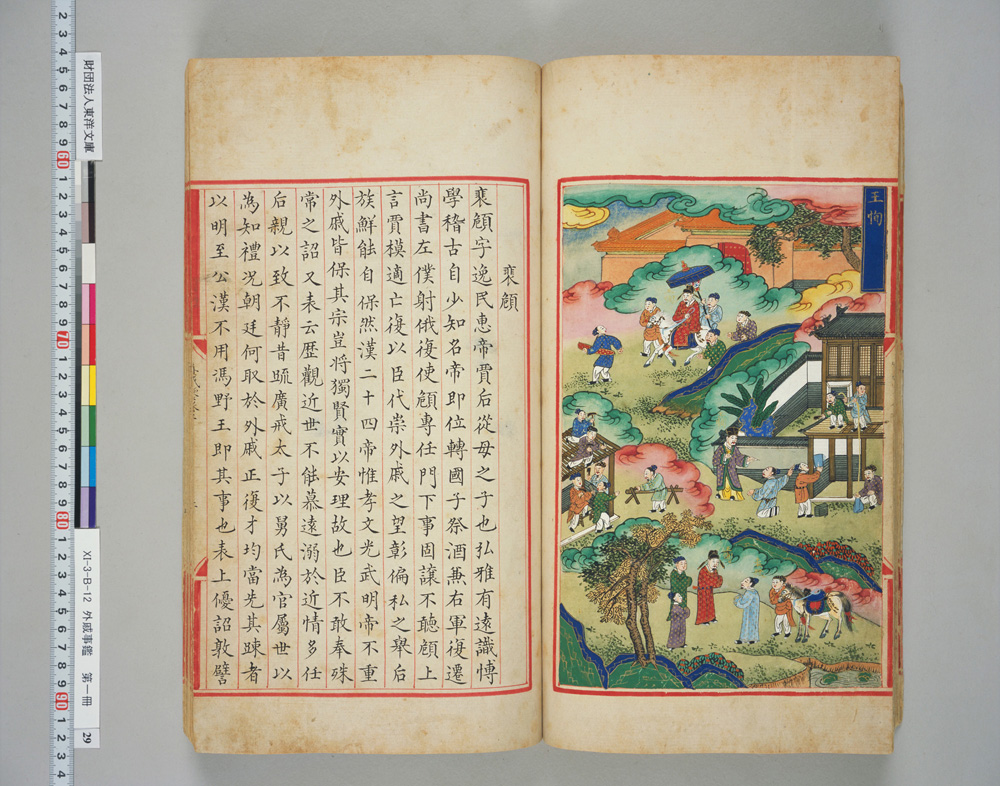 王恂
裴頠
裴頠字逸民惠帝賈后從母之子也弘雅有遠識博
學稽古自少知名帝即位轉國子祭酒兼右軍復遷
尚書左僕射俄復使頠專任門下事固讓不聽頠上
言賈模適亡復以臣代崇外戚之望彰偏私之舉后
族鮮能自保然漢二十四帝惟孝文光武明帝不重
外戚皆保其宗豈將獨賢實以安理故也臣不敢奉殊
常之詔又表云歷觀近世不能慕遠溺於近情多任
后親以致不靜昔疏廣戒太子以舅氏為官屬世以
為知禮况朝廷何取於外戚正復才均當先其踈者
以明至公漢不用馮野王即其事也表上優詔敦譬
財団法人東洋文庫
XI-3-B-12 外戚事鑑 第一冊 29
2 3 4 5 6 7 8 9 60 1 2 3 4 5 6 7 8 9 70 1 2 3 4 5 6 7 8 9 80 1 2 3 4 5 6 7 8 9 90 1 2 3 4